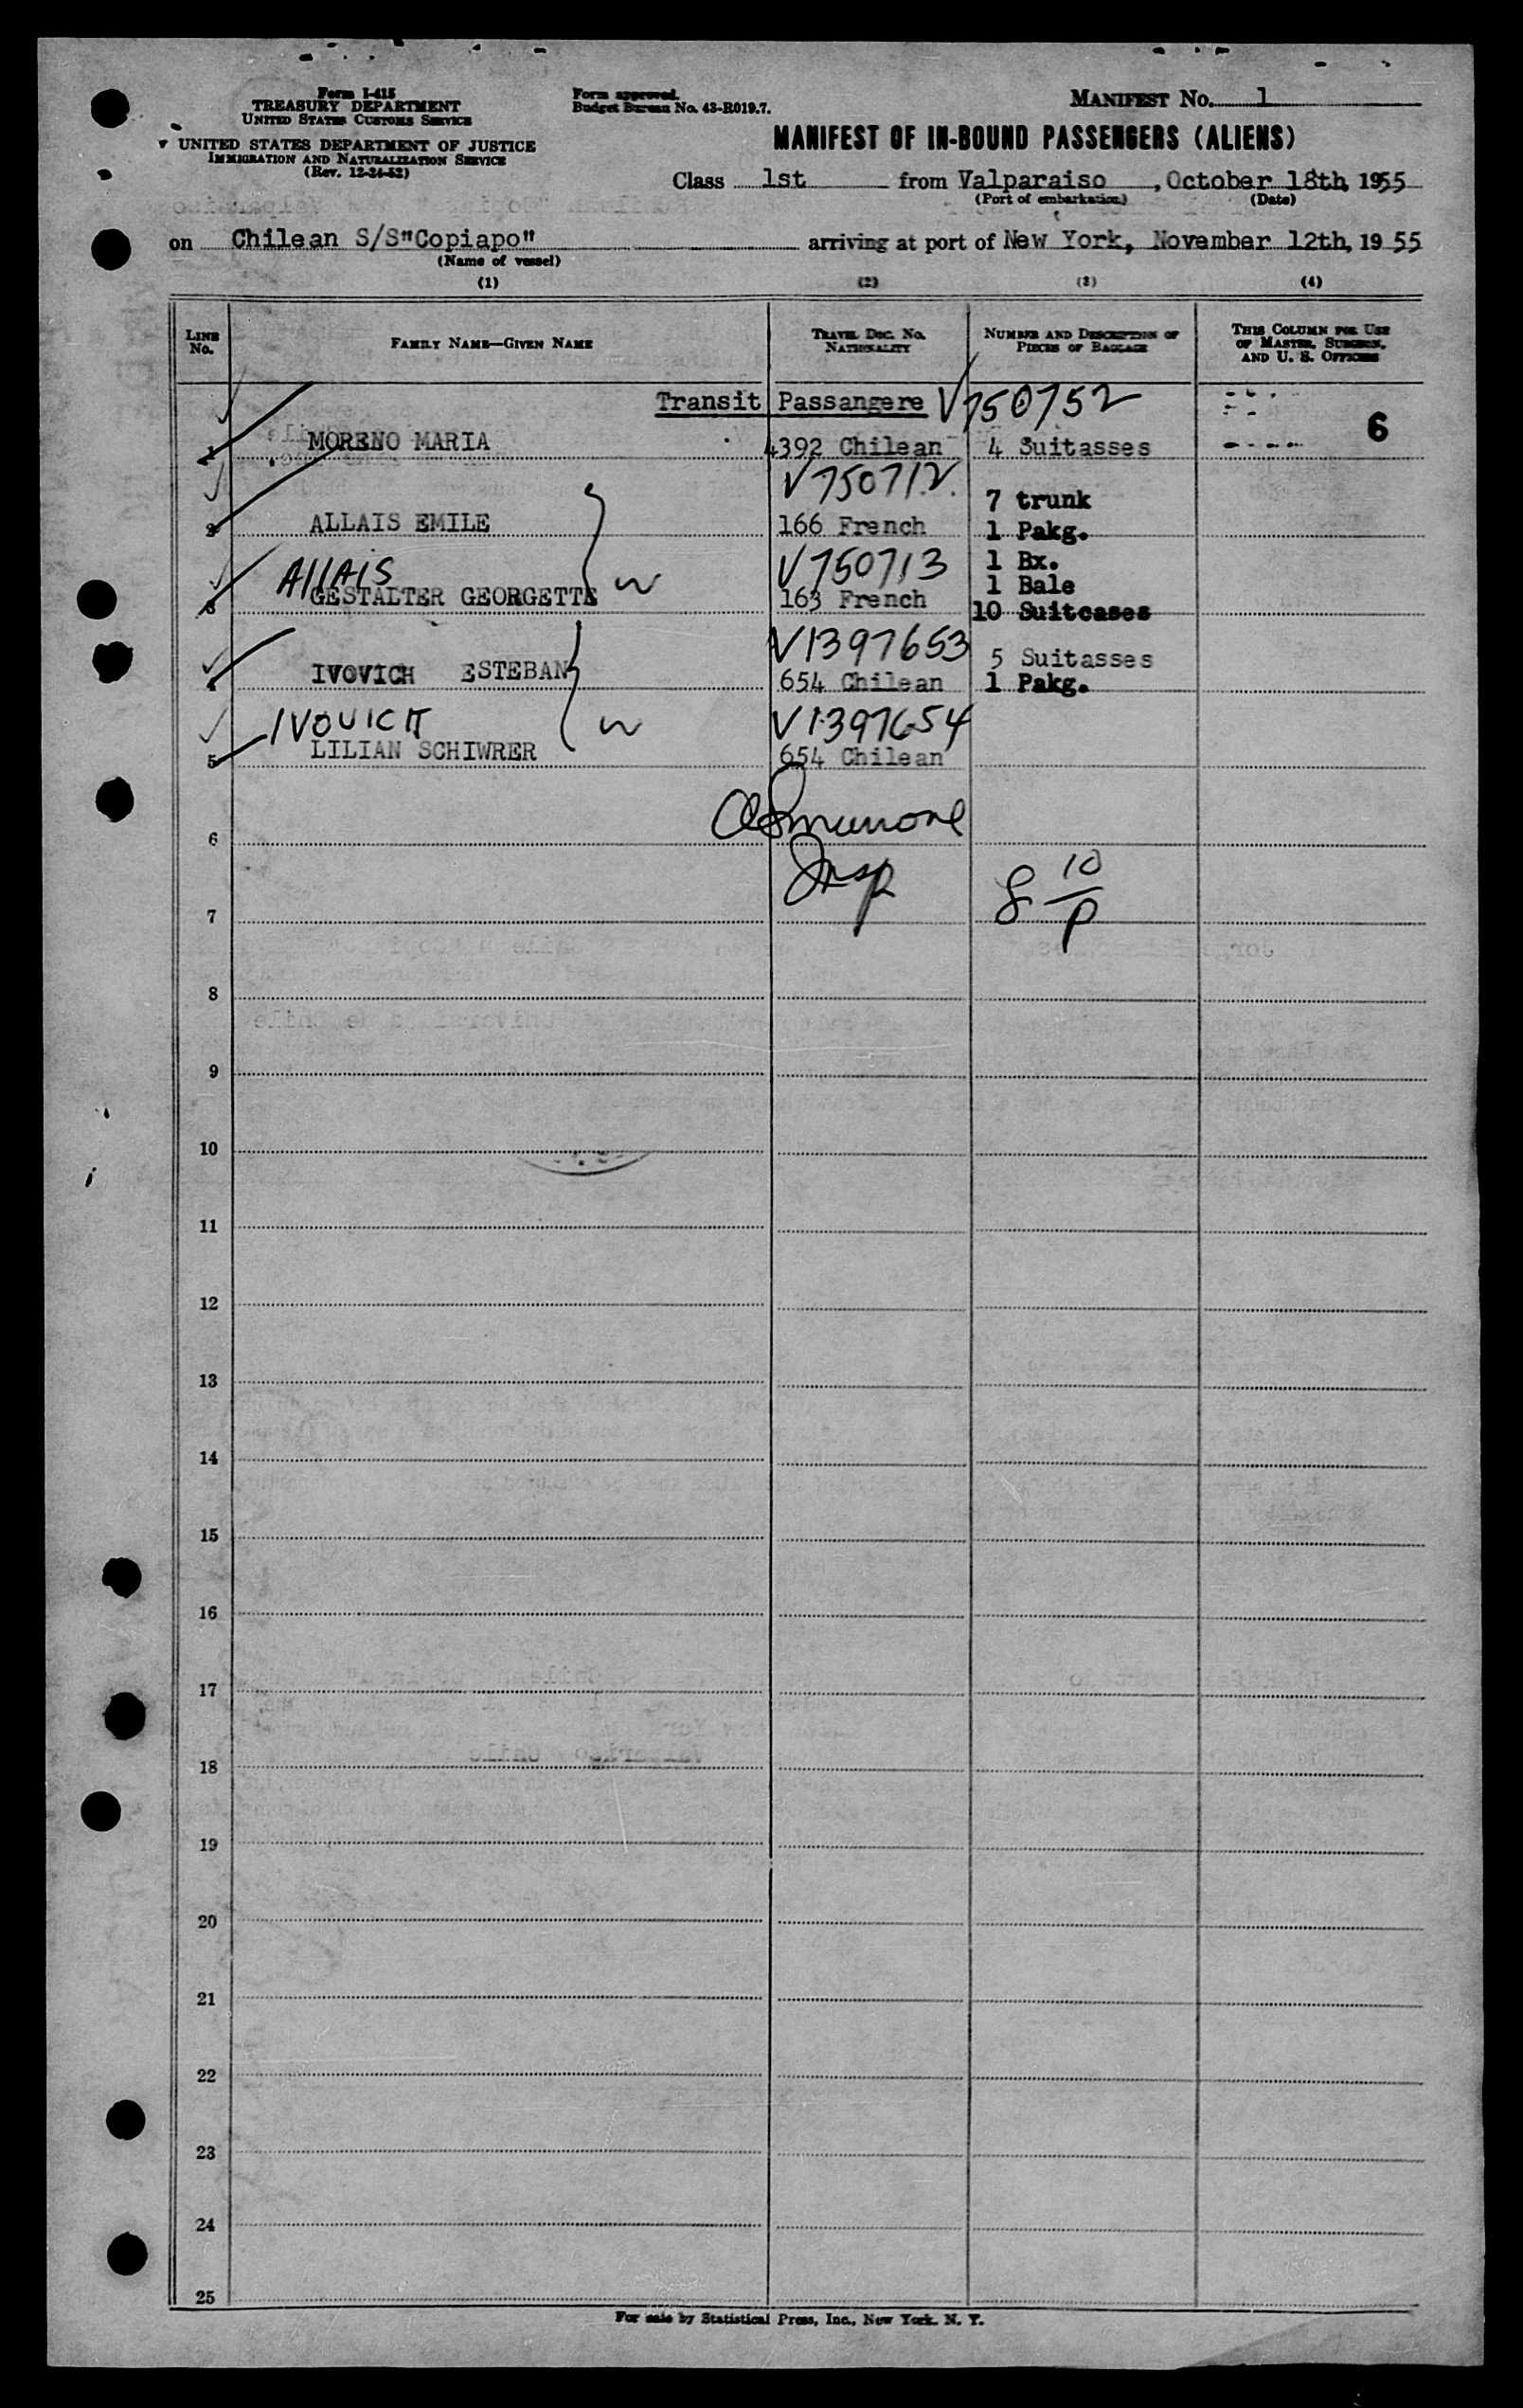 Form I-415
TREASURY DEPARTMENT
UNITED STATES CUSTOMS SERVICE
UNITED STATES DEPARTMENT OF JUSTICE
IMMIGRATION AND NATURALIZATION SERVICE
(Rev. 12-24-52)
Form approved.
Budget Bureau No. 43-R019.7.
MANIFEST No. 1
MANIFEST OF IN-BOUND PASSENGERS (ALIENS)
Class 1st from Valparaiso, October 18th, 1955
(Port of embarkation) (Date)
on Chilean S/S"Copiapo" arriving at port of New York, November 12th, 1955
(Name of vessel)
(1) (2) (3) (4)
LINE No. FAMILY NAME—GIVEN NAME TRAVEL DOC. NO. NATIONALITY NUMBER AND DESCRIPTION OF PIECES OF BAGGAGE THIS COLUMN FOR USE OF MASTER, SURGEON, AND U. S. OFFICERS
Transit Passangere V750752
1 MORENO MARIA 4392 Chilean 4 Suitasses 6
V750712
7 trunk
2 ALLAIS EMILE 166 French 1 Pakg.
ALLAIS V750713 1 Bx.
1 Bale
3 GESTALTER GEORGETTE 163 French 10 Suitcases
V1397653 5 Suitasses
4 IVOVICH ESTEBAN 654 Chilean 1 Pakg.
IVOVICH V1397654
5 LILIAN SCHIWRER 654 Chilean
6
Insp 8 10/P
7
8
9
10
11
12
13
14
15
16
17
18
19
20
21
22
23
24
25
For sale by Statistical Press, Inc., New York, N. Y.